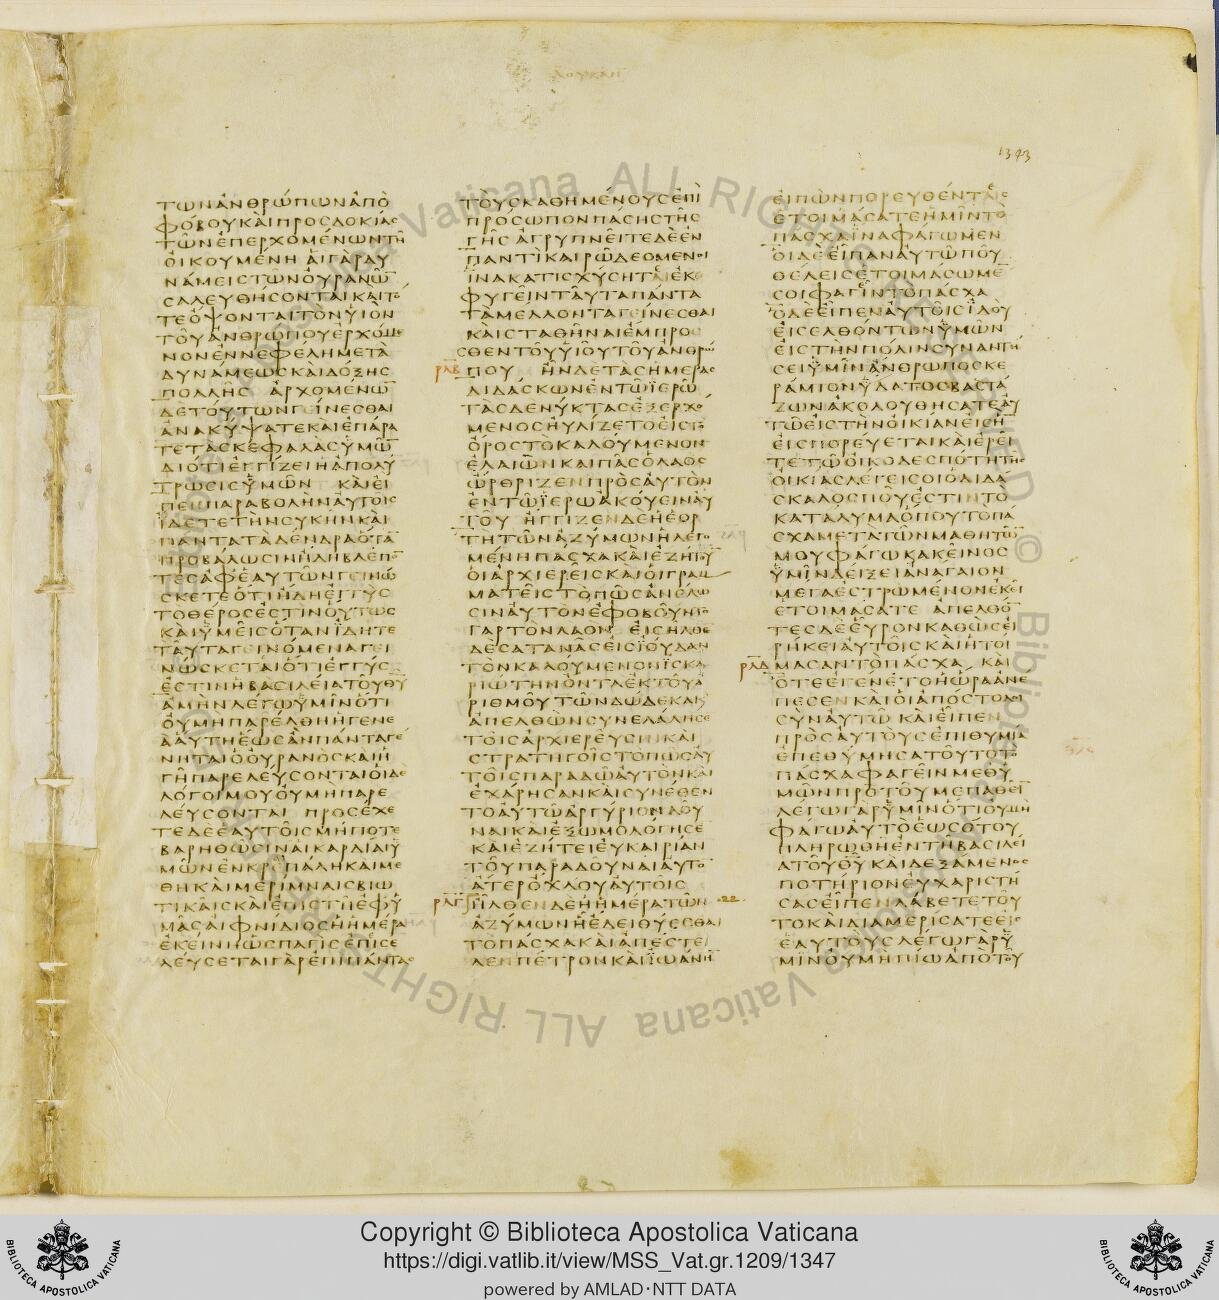 1343
ΤΩΝΑΝΘΡΩΠΩΝΑΠΟ
ΦΟΒΟΥΚΑΙΠΡΟΣΔΟΚΙΑΣ
ΤΩΝΕΠΕΡΧΟΜΕΝΩΝΤΗ
ΟΙΚΟΥΜΕΝΗ ΑΙΓΑΡΔΥ
ΝΑΜΕΙΣΤΩΝΟΥΡΑΝΩ̅
ΣΑΛΕΥΘΗΣΟΝΤΑΙΚΑΙΤΟ
ΤΕΟΨΟΝΤΑΙΤΟΝΥΙΟΝ
ΤΟΥΑΝΘΡΩΠΟΥΕΡΧΟΜΕ
ΝΟΝΕΝΝΕΦΕΛΗΜΕΤΑ
ΔΥΝΑΜΕΩΣΚΑΙΔΟΞΗΣ
ΠΟΛΛΗΣ ΑΡΧΟΜΕΝΩ̅
ΔΕΤΟΥΤΩΝΓΕΙΝΕΣΘΑΙ
ΑΝΑΚΥΨΑΤΕΚΑΙΕΠΑΡΑ
ΤΕΤΑΣΚΕΦΑΛΑΣΥΜΩ̅
ΔΙΟΤΙΕΓΓΙΖΕΙΗΑΠΟΛΥ
ΤΡΩΣΙΣΥΜΩΝ ΚΑΙΕΙ
ΠΕΝΠΑΡΑΒΟΛΗΝΑΥΤΟΙΣ
ΙΔΕΤΕΤΗΝΣΥΚΗΝΚΑΙ
ΠΑΝΤΑΤΑΔΕΝΔΡΑΟΤΑ̅
ΠΡΟΒΑΛΩΣΙΝΗΔΗΒΛΕΠΟ̅
ΤΕΣΑΦΕΑΥΤΩΝΓΕΙΝΩ
ΣΚΕΤΕΟΤΙΗΔΗΕΓΓΥΣ
ΤΟΘΕΡΟΣΕΣΤΙΝΟΥΤΩΣ
ΚΑΙΥΜΕΙΣΟΤΑΝΙΔΗΤΕ
ΤΑΥΤΑΓΕΙΝΟΜΕΝΑΓΕΙ
ΝΩΣΚΕΤΑΙΟΤΙΕΓΓΥΣ
ΕΣΤΙΝΗΒΑΣΙΛΕΙΑΤΟΥΘΥ̅
ΑΜΗΝΛΕΓΩΥΜΙΝΟΤΙ
ΟΥΜΗΠΑΡΕΛΘΗΗΓΕΝΕ
ΑΑΥΤΗΕΩΣΑΝΠΑΝΤΑΓΕ
ΝΗΤΑΙΟΟΥΡΑΝΟΣΚΑΙΗ
ΓΗΠΑΡΕΛΕΥΣΟΝΤΑΙΟΙΔΕ
ΛΟΓΟΙΜΟΥΟΥΜΗΠΑΡΕ
ΛΕΥΣΟΝΤΑΙ ΠΡΟΣΕΧΕ
ΤΕΔΕΕΑΥΤΟΙΣΜΗΠΟΤΕ
ΒΑΡΗΘΩΣΙΝΑΙΚΑΡΔΙΑΙΥ
ΜΩΝΕΝΚΡΕΠΑΛΗΚΑΙΜΕ
ΘΗΚΑΙΜΕΡΙΜΝΑΙΣΒΙΩ
ΤΙΚΑΙΣΚΑΙΕΠΙΣΤΗΕΦΥ
ΜΑΣΑΙΦΝΙΔΙΟΣΗΗΜΕΡΑ
ΕΚΕΙΝΗΩΣΠΑΓΙΣΕΠΕΙΣΕ
ΛΕΥΣΕΤΑΙΓΑΡΕΠΙΠΑΝΤΑΣ
ΤΟΥΣΚΑΘΗΜΕΝΟΥΣΕΠΙ
ΠΡΟΣΩΠΟΝΠΑΣΗΣΤΗΣ
ΓΗΣ ΑΓΡΥΠΝΕΙΤΕΔΕΕΝ
ΠΑΝΤΙΚΑΙΡΩΔΕΟΜΕΝΟΙ
ΙΝΑΚΑΤΙΣΧΥΣΗΤΑΙΕΚ
ΦΥΓΕΙΝΤΑΥΤΑΠΑΝΤΑ
ΤΑΜΕΛΛΟΝΤΑΓΕΙΝΕΣΘΑΙ
ΚΑΙΣΤΑΘΗΝΑΙΕΜΠΡΟ
ΣΘΕΝΤΟΥΥΙΟΥΤΟΥΑΝΘΡΩ
ΡΛΒ ΠΟΥ ΗΝΔΕΤΑΣΗΜΕΡΑΣ
ΔΙΔΑΣΚΩΝΕΝΤΩΙΕΡΩ
ΤΑΣΔΕΝΥΚΤΑΣΕΞΕΡΧΟ
ΜΕΝΟΣΗΥΛΙΖΕΤΟΕΙΣΤΟ
ΟΡΟΣΤΟΚΑΛΟΥΜΕΝΟΝ
ΕΛΑΙΩΝΚΑΙΠΑΣΟΛΑΟΣ
ΩΡΘΡΙΖΕΝΠΡΟΣΑΥΤΟΝ
ΕΝΤΩΙΕΡΩΑΚΟΥΕΙΝΑΥ
ΤΟΥ ΗΓΓΙΖΕΝΔΕΗΕΟΡ
ΤΗΤΩΝΑΖΥΜΩΝΗΛΕΓΟ
ΜΕΝΗΠΑΣΧΑΚΑΙΕΖΗΤΟΥ̅
ΟΙΑΡΧΙΕΡΕΙΣΚΑΙΟΙΓΡΑΜ
ΜΑΤΕΙΣΤΟΠΩΣΑΝΕΛΩ
ΣΙΝΑΥΤΟΝΕΦΟΒΟΥΝΤΟ
ΓΑΡΤΟΝΛΑΟΝ ΕΙΣΗΛΘΕ
ΔΕΣΑΤΑΝΑΣΕΙΣΙΟΥΔΑΝ
ΤΟΝΚΑΛΟΥΜΕΝΟΝΙΣΚΑ
ΡΙΩΤΗΝΟΝΤΑΕΚΤΟΥΑ
ΡΙΘΜΟΥΤΩΝΔΩΔΕΚΑΚΑΙ
ΑΠΕΛΘΩΝΣΥΝΕΛΑΛΗΣΕ
ΤΟΙΣΑΡΧΙΕΡΕΥΣΙΝΚΑΙ
ΣΤΡΑΤΗΓΟΙΣΤΟΠΩΣΑΥ
ΤΟΙΣΠΑΡΑΔΩΑΥΤΟΝΚΑΙ
ΕΧΑΡΗΣΑΝΚΑΙΣΥΝΕΘΕΝ
ΤΟΑΥΤΩΑΡΓΥΡΙΟΝΔΟΥ
ΝΑΙΚΑΙΕΞΩΜΟΛΟΓΗΣΕ
ΚΑΙΕΖΗΤΕΙΕΥΚΑΙΡΙΑΝ
ΤΟΥΠΑΡΑΔΟΥΝΑΙΑΥΤΟ̅
ΑΤΕΡΟΧΛΟΥΑΥΤΟΙΣ
ΡΛΓ ΗΛΘΕΝΔΕΗΗΜΕΡΑΤΩΝ
ΑΖΥΜΩΝΗΕΔΕΙΘΥΕΣΘΑΙ
ΤΟΠΑΣΧΑΚΑΙΑΠΕΣΤΕΙ
ΛΕΝΠΕΤΡΟΝΚΑΙΙΩΑΝΗ̅
ΕΙΠΩΝΠΟΡΕΥΘΕΝΤΕΣ
ΕΤΟΙΜΑΣΑΤΕΗΜΙΝΤΟ
ΠΑΣΧΑΙΝΑΦΑΓΩΜΕΝ
ΟΙΔΕΕΙΠΑΝΑΥΤΩΠΟΥ
ΘΕΛΕΙΣΕΤΟΙΜΑΣΩΜΕ̅
ΣΟΙΦΑΓΕΙΝΤΟΠΑΣΧΑ
ΟΔΕΕΙΠΕΝΑΥΤΟΙΣΙΔΟΥ
ΕΙΣΕΛΘΟΝΤΩΝΥΜΩΝ
ΕΙΣΤΗΝΠΟΛΙΝΣΥΝΑΝΤΗ
ΣΕΙΥΜΙΝΑΝΘΡΩΠΟΣΚΕ
ΡΑΜΙΟΝΥΔΑΤΟΣΒΑΣΤΑ
ΖΩΝΑΚΟΛΟΥΘΗΣΑΤΕΑΥ
ΤΩΕΙΣΤΗΝΟΙΚΙΑΝΕΙΣΗ̅
ΕΙΣΠΟΡΕΥΕΤΑΙΚΑΙΕΡΕΙ
ΤΕΤΩΟΙΚΟΔΕΣΠΟΤΗΤΗΣ
ΟΙΚΙΑΣΛΕΓΕΙΣΟΙΟΔΙΔΑ
ΣΚΑΛΟΣΠΟΥΕΣΤΙΝΤΟ
ΚΑΤΑΛΥΜΑΟΠΟΥΤΟΠΑ
ΣΧΑΜΕΤΑΤΩΝΜΑΘΗΤΩ̅
ΜΟΥΦΑΓΩΚΑΚΕΙΝΟΣ
ΥΜΙΝΔΕΙΞΕΙΑΝΑΓΑΙΟΝ
ΜΕΓΑΕΣΤΡΩΜΕΝΟΝΕΚΕΙ
ΕΤΟΙΜΑΣΑΤΕ ΑΠΕΛΘΟ̅
ΤΕΣΔΕΕΥΡΟΝΚΑΘΩΣΕΙ
ΡΗΚΕΙΑΥΤΟΙΣΚΑΙΗΤΟΙ
ΡΛΔ ΜΑΣΑΝΤΟΠΑΣΧΑ ΚΑΙ
ΟΤΕΕΓΕΝΕΤΟΗΩΡΑΑΝΕ
ΠΕΣΕΝΚΑΙΟΙΑΠΟΣΤΟΛΟΙ
ΣΥΝΑΥΤΩ ΚΑΙΕΙΠΕΝ
ΠΡΟΣΑΥΤΟΥΣΕΠΙΘΥΜΙΑ
ΕΠΕΘΥΜΗΣΑΤΟΥΤΟΤΟ
ΠΑΣΧΑΦΑΓΕΙΝΜΕΘΥ
ΜΩΝΠΡΟΤΟΥΜΕΠΑΘΕΙ̅
ΛΕΓΩΓΑΡΥΜΙΝΟΤΙΟΥΜΗ
ΦΑΓΩΑΥΤΟΕΩΣΟΤΟΥ
ΠΛΗΡΩΘΗΕΝΤΗΒΑΣΙΛΕΙ
ΑΤΟΥΘΥ̅ΚΑΙΔΕΞΑΜΕΝΟΣ
ΠΟΤΗΡΙΟΝΕΥΧΑΡΙΣΤΗ
ΣΑΣΕΙΠΕΝΛΑΒΕΤΕΤΟΥ
ΤΟΚΑΙΔΙΑΜΕΡΙΣΑΤΕΕΙΣ
ΕΑΥΤΟΥΣΛΕΓΩΓΑΡΥ
ΜΙΝΟΥΜΗΠΙΩΑΠΟΤΟΥ
Copyright © Biblioteca Apostolica Vaticana
https://digi.vatlib.it/view/MSS_Vat.gr.1209/1347
powered by AMLAD·NTT DATA
BIBLIOTECA APOSTOLICA VATICANA
BIBLIOTECA APOSTOLICA VATICANA